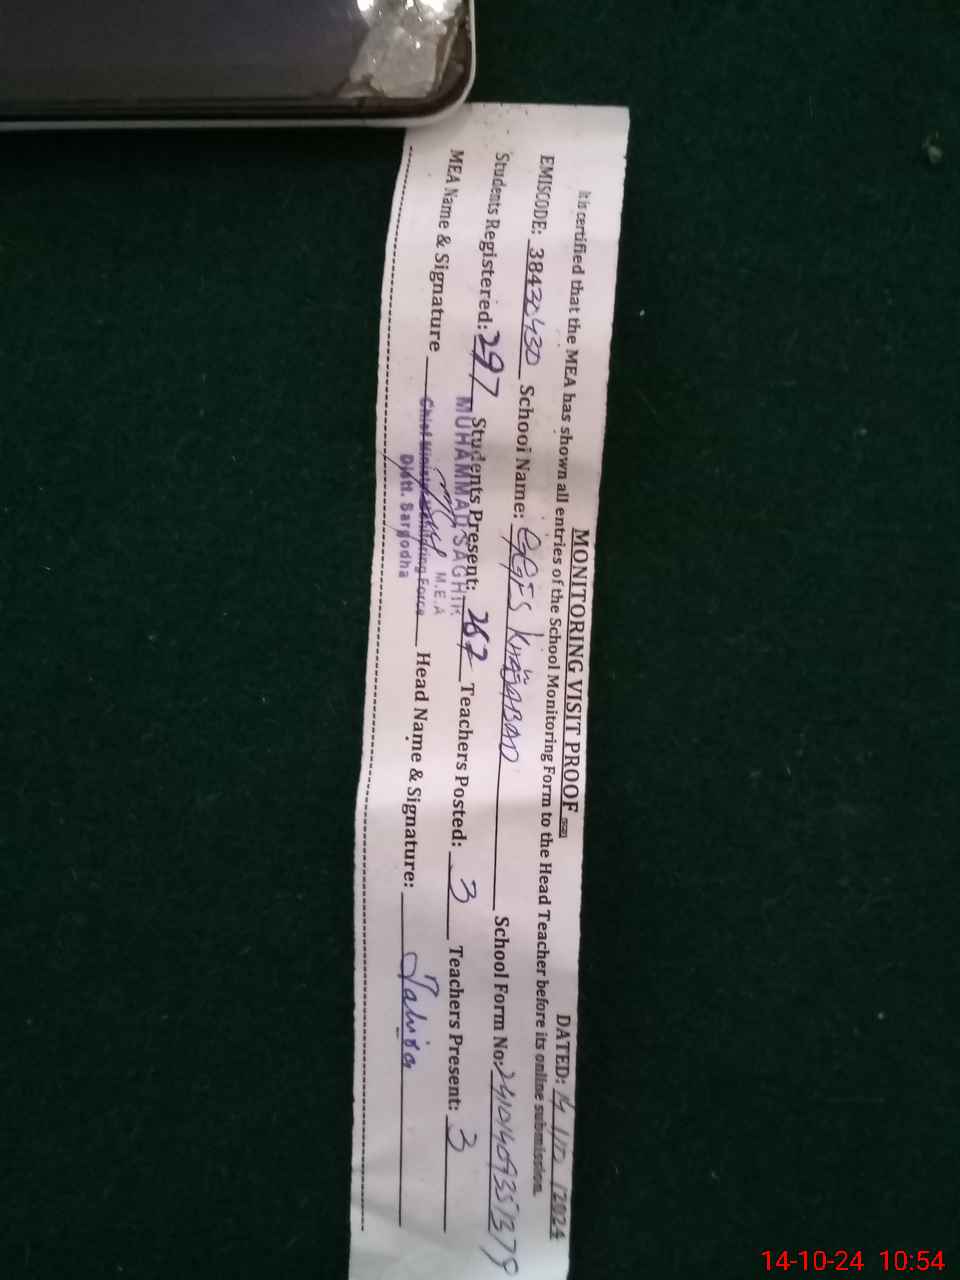 MONITORING VISIT PROOF
DATED: 14/10/2024
It is certified that the MEA has shown all entries of the School Monitoring Form to the Head Teacher before its online submission.
EMISCODE: 38430430 School Name: GGES KHAJABAD School Form No:
Students Registered: 297 Students Present: 267 Teachers Posted: 3 Teachers Present: 3
MEA Name & Signature Head Name & Signature: Tahira
MUHAMMAD SAGHIR
M.E.A
Chief Minister Monitoring Force
Distt. Sargodha
14-10-24 10:54